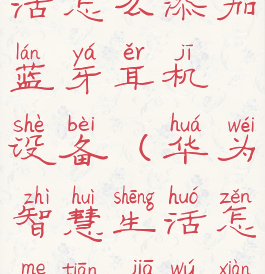 活怎么添加
lán yá ěr jī
蓝牙耳机
shè bèi huá wéi
设备（华为
zhì huì shēng huó zěn
智慧生活怎
me tiān jiā wú xiàn